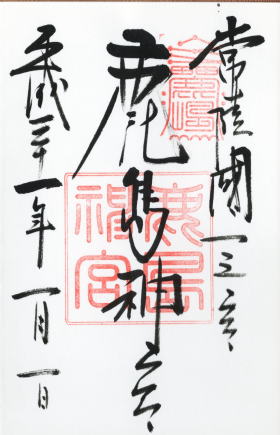 常陸國一之宮
鹿島神宮
鹿島神宮
平成三十一年一月一日